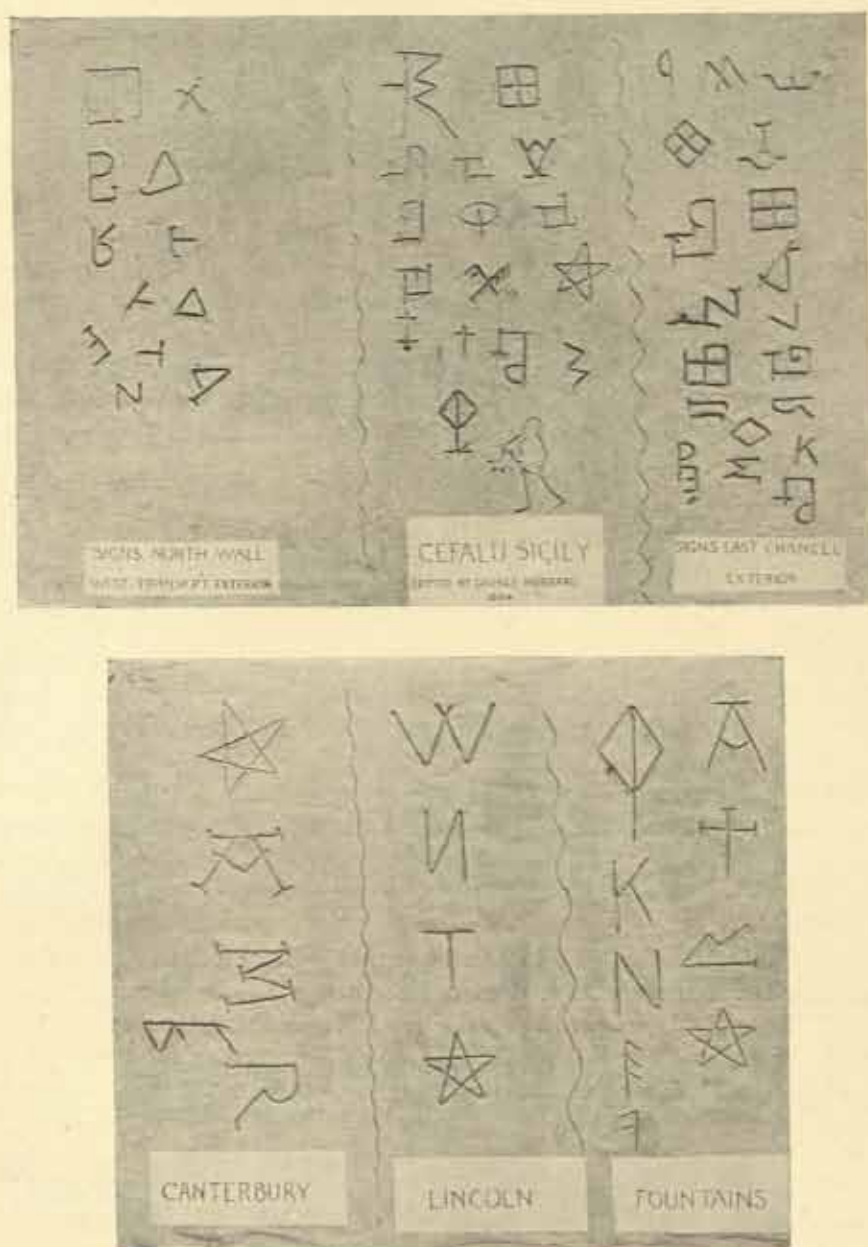 SIGNS NORTH WALL
WEST TRANSEPT EXTERIOR
CEFALU SICILY
SIGNS EAST CHANCEL
EXTERIOR
CANTERBURY
LINCOLN
FOUNTAINS